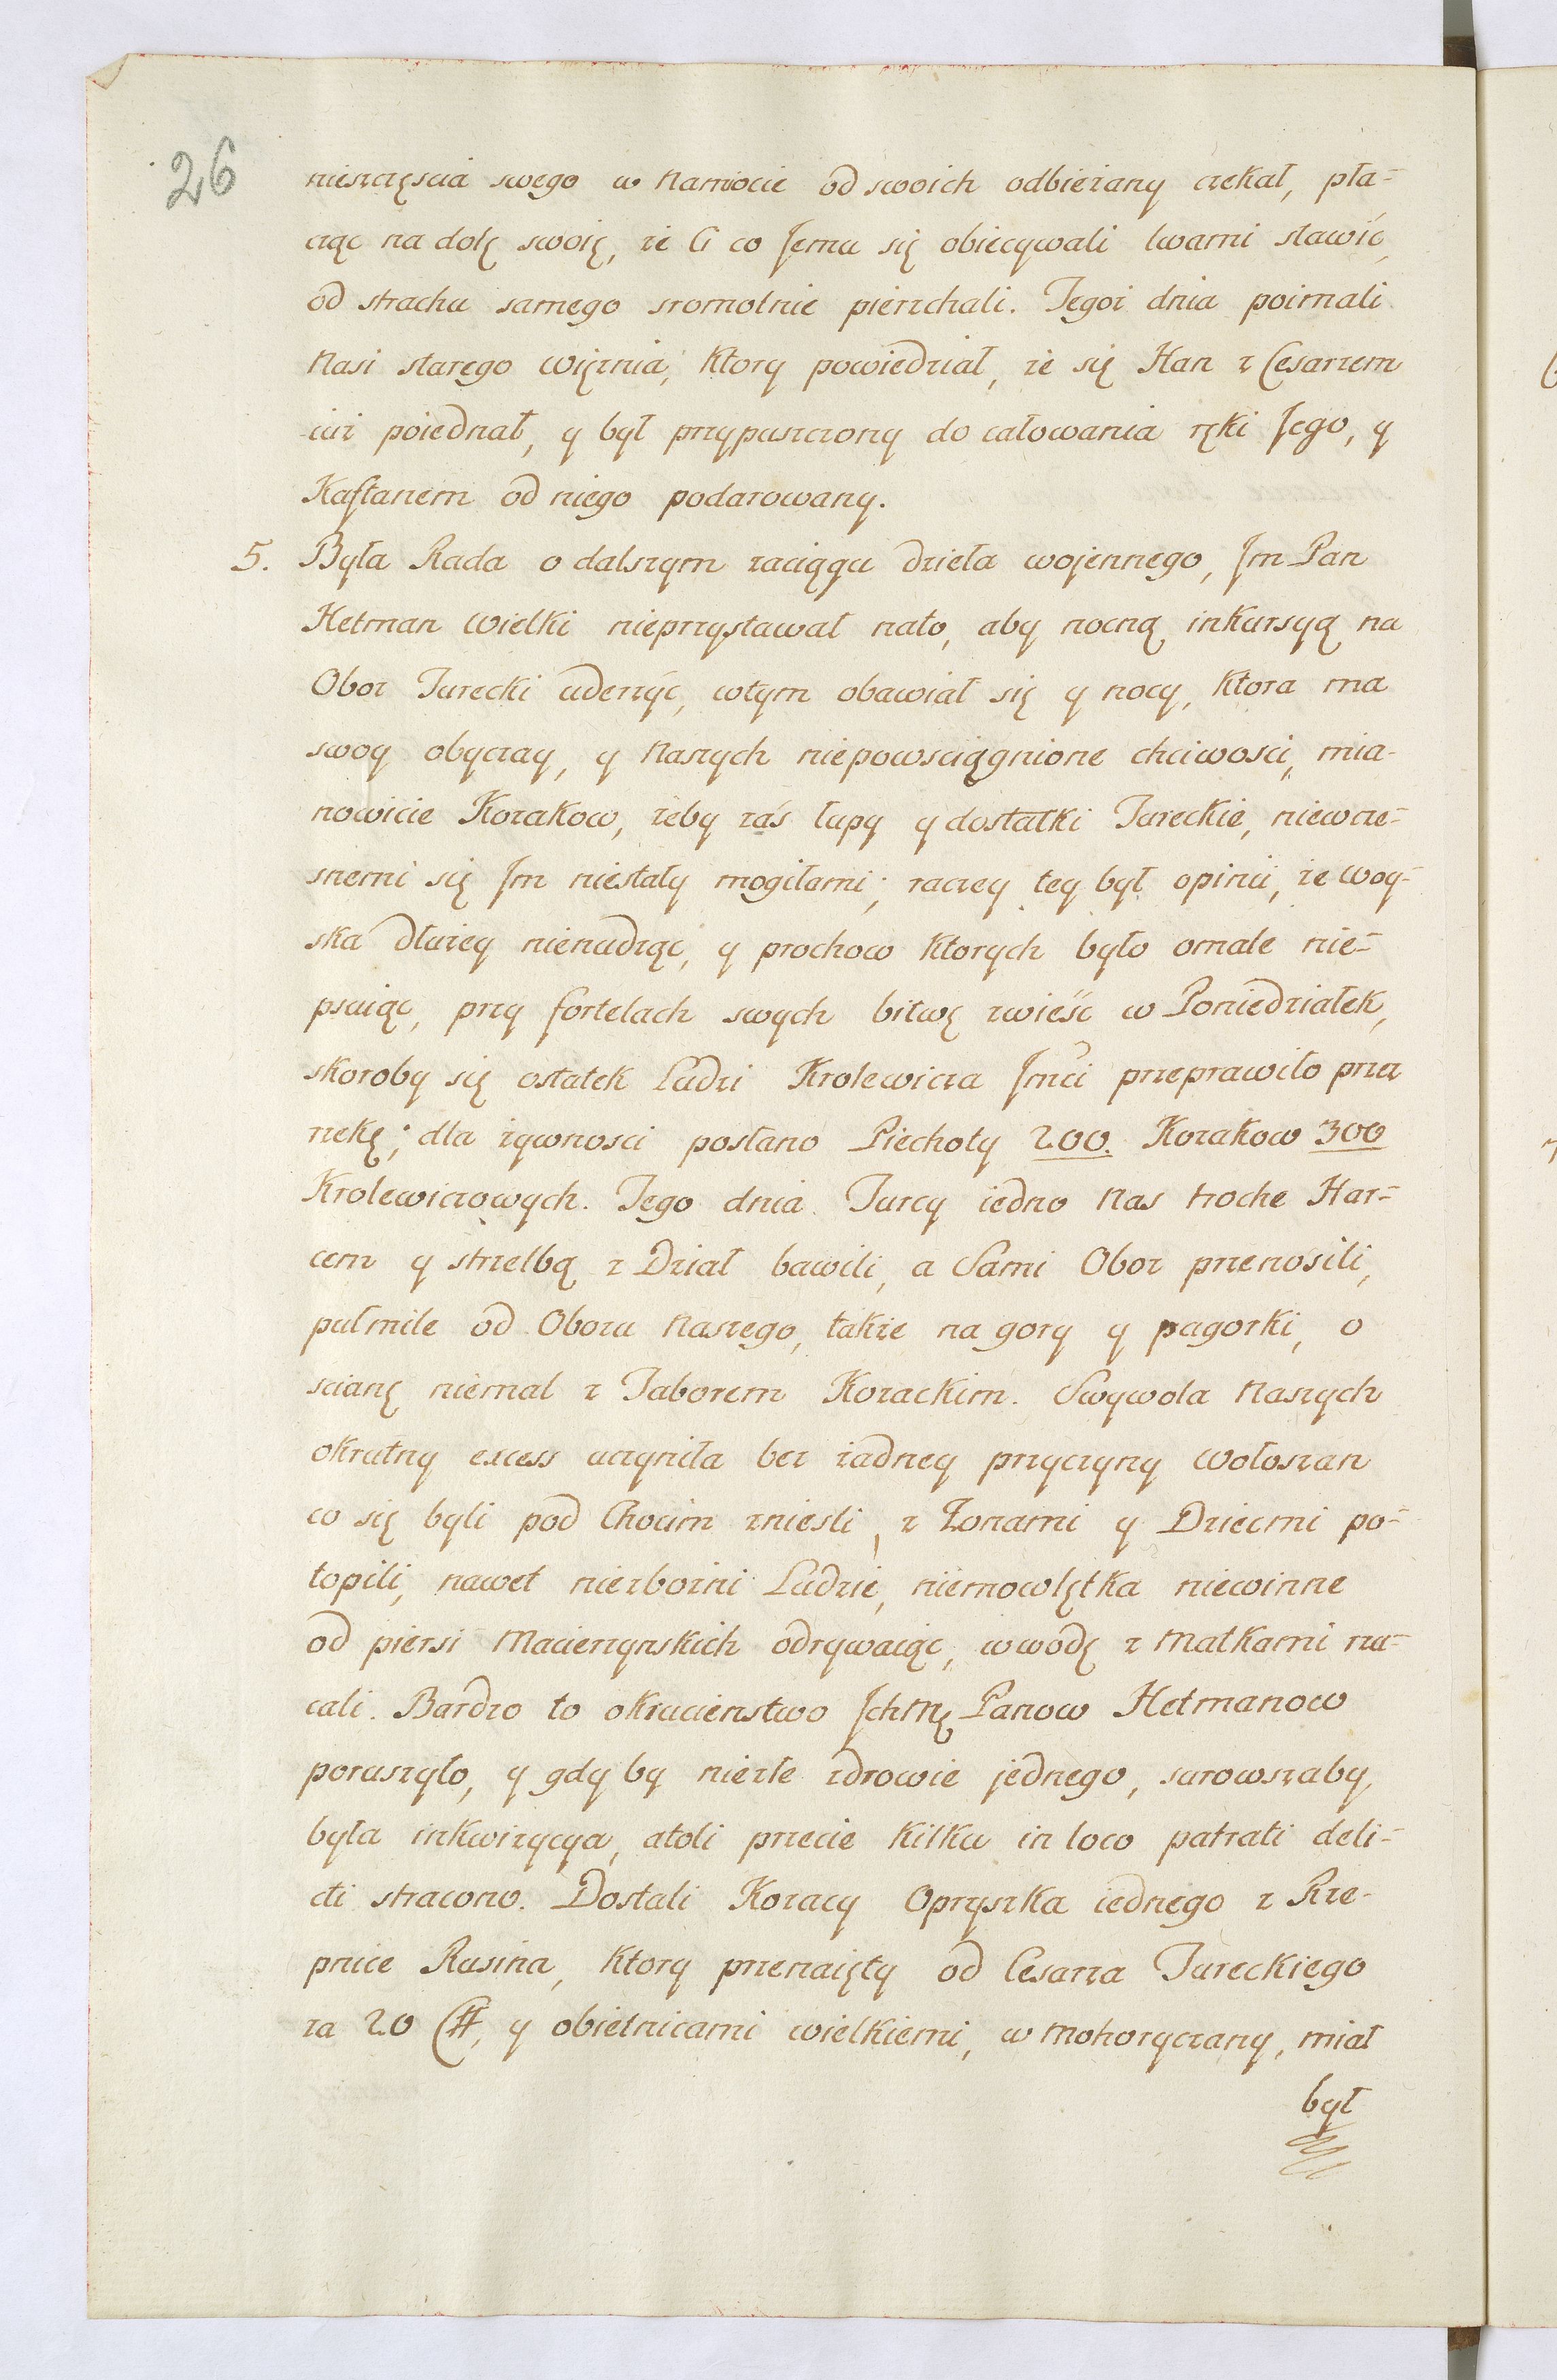 26
nieszczęscia swego w Namiocie od swoich odbieżany czekał, pła-
cząc na dolę swoię, że Ci co Jemu się obiecywali lwami stawić,
od strachu samego sromotnie pierzchali. Tegoż dnia poimali
Nasi starego więznia, Ktory powiedział, że się Han z Cesarzem
iuż poiednał, y był przypuszczony do całowania ręki Jego, y
Kaftanem od niego podarowany.
5. Była Rada o dalszym zaciągu dzieła wojennego, Jm Pan
Hetman Wielki nieprzystawał nato, aby nocną inkursyą na
Oboz Turecki uderzyć, wtym obawiał się y nocy, Ktora ma
swoy obyczay, y Naszych niepowsciągnione chciwosci, mia-
nowicie Kozakow, żeby zaś łupy y dostatki Tureckie, niewcze-
snemi się Jm niestały mogiłami; raczey tey był opinii, że Woy-
ska dłużey nienudząc, y prochow Ktorych było omale nie-
psuiąc, przy fortelach swych bitwę zwieść w Poniedziałek,
skoroby się ostatek Ludzi Krolewicza Jmci przeprawiło przez
rzekę; dla żywnosci posłano Piechoty 200. Kozakow 300
Krolewiczowych. Tego dnia Turcy iedno Nas troche Har-
cem y strzelbą z Dział bawili, a Sami Oboz przenosili,
puł mile od Obozu Naszego, także na gory y pagorki, o
scianę niemal z Taborem Kozackim. Swywola Naszych
okrutny excess uczyniła bez żadney przyczyny Wołoszan
co się byli pod Chocim zniesli, z Żonami y Dziecmi po-
topili, nawet niezbożni Ludzie, niemowlętka niewinne
od piersi Macierzynskich odrywaiąc, w wodę z Matkami rzu-
cali. Bardzo to okrucienstwo Jchmę Panow Hetmanow
poruszyło, y gdy by nie złe zdrowie jednego, surowszaby,
była inkwizycya, atoli przecie Kilku in loco patrati deli-
cti stracono. Dostali Kozacy Opryszka iednego z Rze-
pnice Rusina, Ktory przenaięty od Cesarza Tureckiego
za 20 #, y obietnicami wielkiemi, w Mohoryczany, miał
był